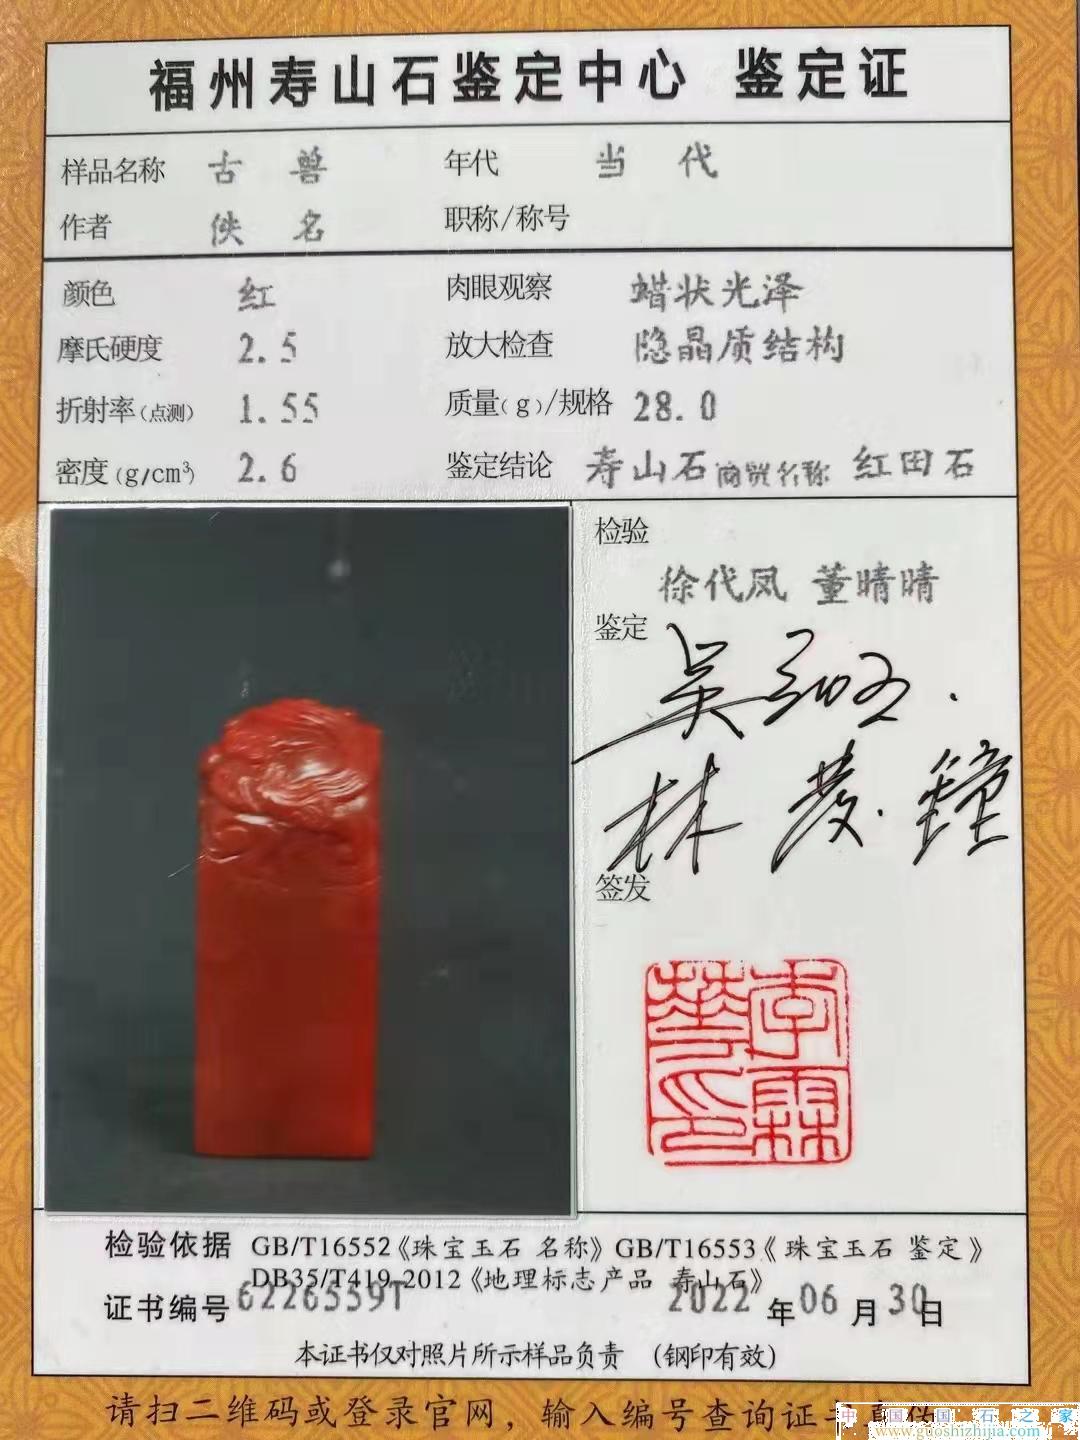 福州寿山石鉴定中心 鉴定证
样品名称 古兽 年代 当代
作者 佚名 职称/称号
颜色 红 肉眼观察 蜡状光泽
摩氏硬度 2.5 放大检查 隐晶质结构
折射率(点测) 1.55 质量(g)/规格 28.0
密度(g/cm³) 2.6 鉴定结论 寿山石 商贸名称 红田石
检验
徐代凤 董晴晴
鉴定
林 发 鐘
签发
李霖
华印
检验依据 GB/T16552《珠宝玉石 名称》GB/T16553《珠宝玉石 鉴定》
DB35/T419-2012《地理标志产品 寿山石》
证书编号 6226559T 2022 年 06 月 30 日
本证书仅对照片所示样品负责 (钢印有效)
请扫二维码或登录官网，输入编号查询证书真伪
中国国石之家
www.guoshizhijia.com